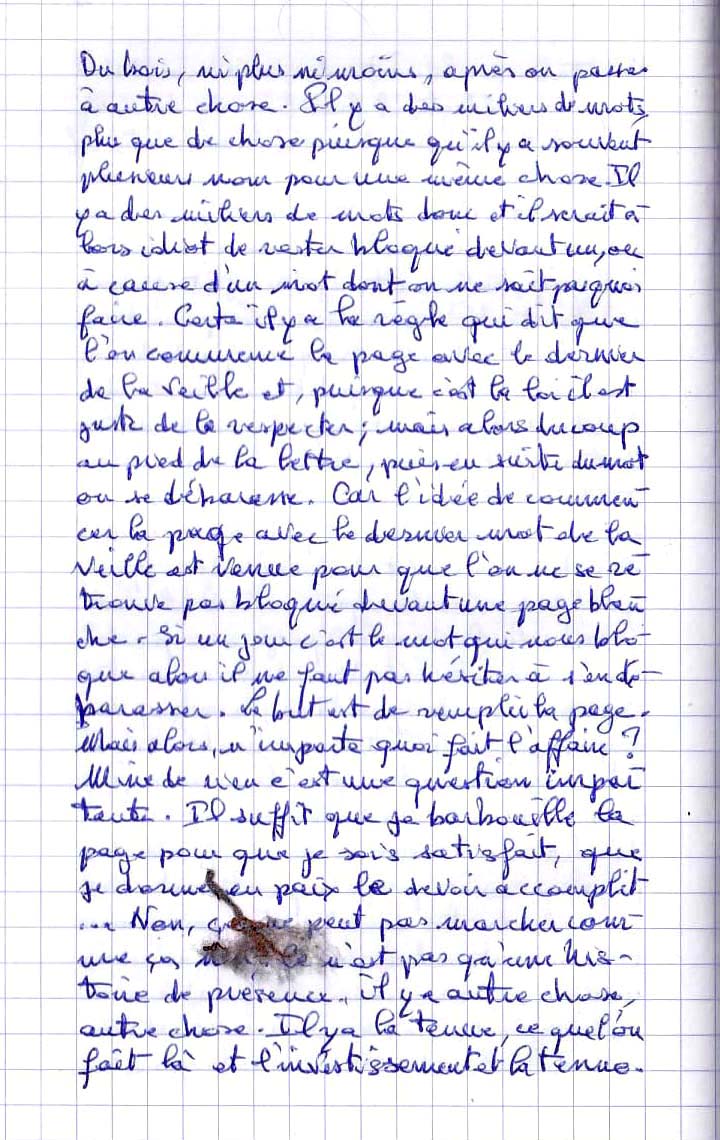 Du bois, ni plus ni moins, après on passe
à autre chose. Il y a des milliers de mots,
plus que de chose puisque qu'il y a souvent
plusieurs nom pour une même chose. Il
y a des milliers de mots donc et il serait a-
lors idiot de rester bloqué devant un, ou
à cause d'un mot dont on ne sait pas quoi
faire. Certe il y a la règle qui dit que
l'on commence la page avec le dernier
de la veille et, puisque c'est la loi il est
juste de la respecter; mais alors du coup
au pied de la lettre, puis en suite du mot
on se débarasse. Car l'idée de commen-
cer la page avec le dernier mot de la
veille est venue pour que l'on ne se re-
trouve pas bloqué devant une page blan-
che. Si un jour c'est le mot qui nous blo-
que alors il ne faut pas hésiter à s'en dé-
barasser. Le but est de remplir la page.
Mais alors, n'importe quoi fait l'affaire ?
Mine de rien c'est une question impor-
tante. Il suffit que je barbouille la
page pour que je sois satisfait, que
je dorme en paix le devoir accomplit
... Non, ça ne peut pas marcher com-
me ça, ce n'est pas qu'une his-
toire de présence, il y a autre chose,
autre chose. Il y a la tenue, ce que l'on
fait là et l'investissement et la tenue.